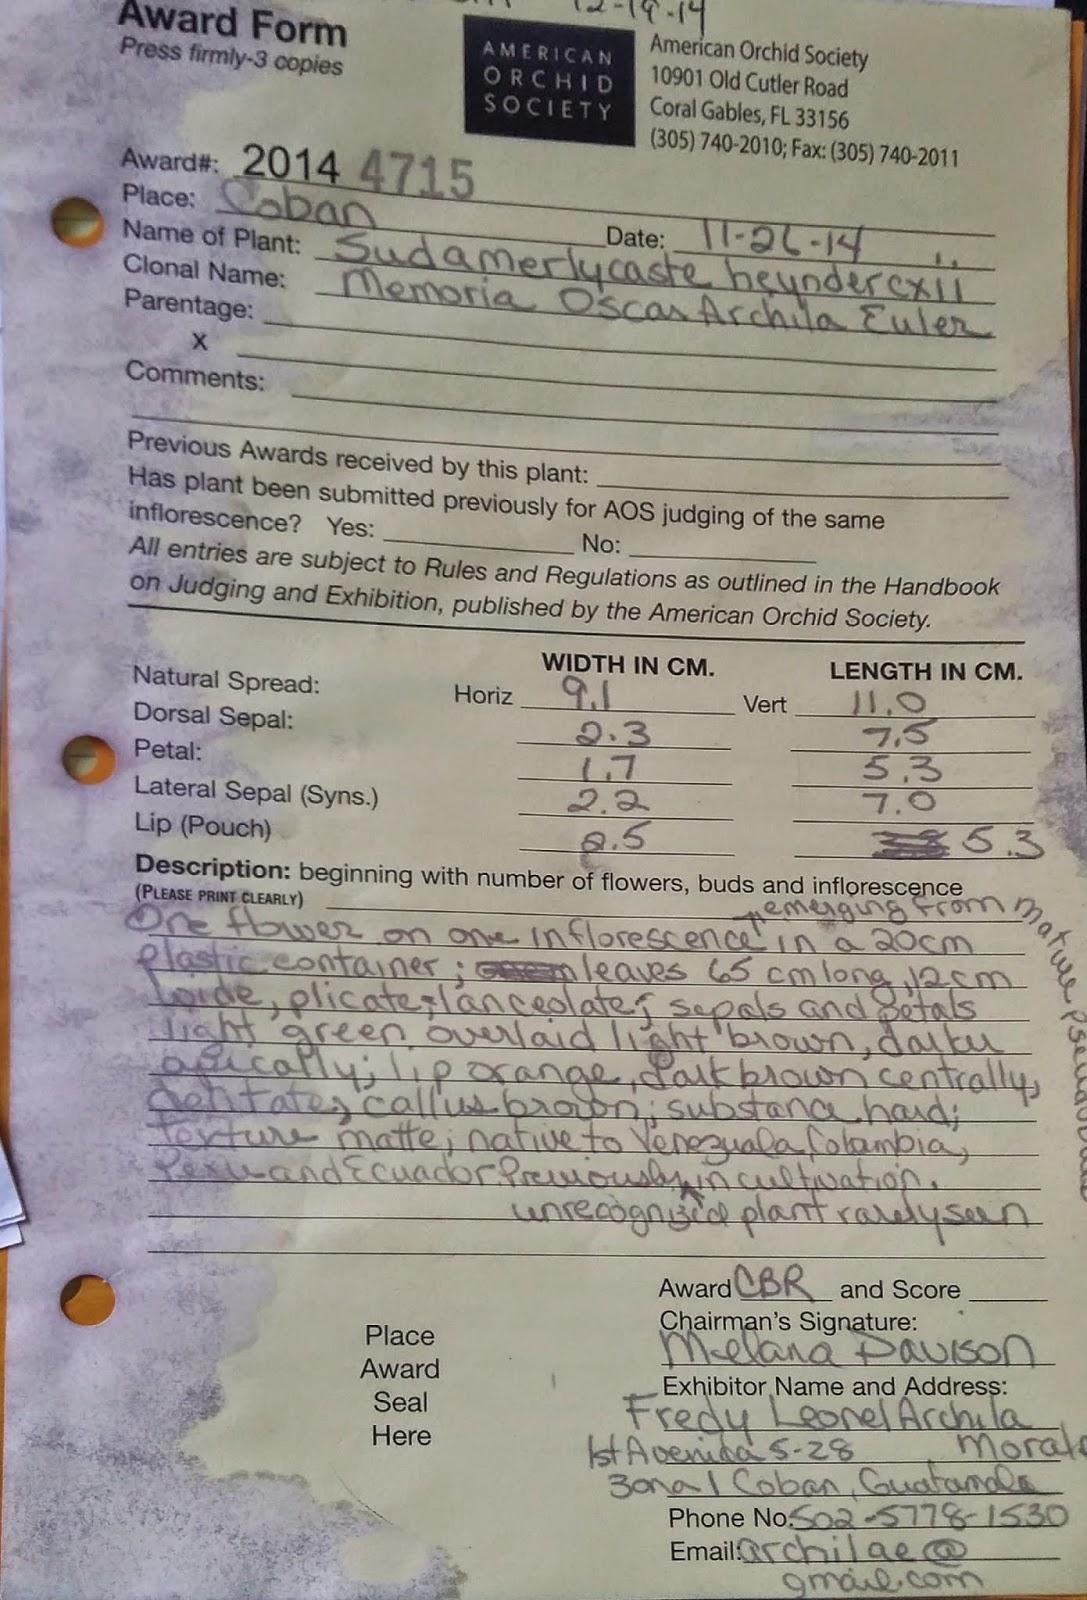 12-19-14
Award Form
Press firmly-3 copies
AMERICAN
ORCHID
SOCIETY
American Orchid Society
10901 Old Cutler Road
Coral Gables, FL 33156
(305) 740-2010; Fax: (305) 740-2011
Award#: 2014 4715
Place: Coban Date: 11-26-14
Name of Plant: Sudamerlycaste heyndercxii
Clonal Name: Memoria Oscar Archila Euler
Parentage:
x
Comments:
Previous Awards received by this plant:
Has plant been submitted previously for AOS judging of the same
inflorescence? Yes: No:
All entries are subject to Rules and Regulations as outlined in the Handbook
on Judging and Exhibition, published by the American Orchid Society.
WIDTH IN CM. LENGTH IN CM.
Natural Spread: Horiz 9.1 Vert 11.0
Dorsal Sepal: 2.3 7.5
Petal: 1.7 5.3
Lateral Sepal (Syns.) 2.2 7.0
Lip (Pouch) 2.5 5.3
Description: beginning with number of flowers, buds and inflorescence
(PLEASE PRINT CLEARLY)
emerging from mature
One flower on one inflorescence in a 20cm
plastic container; leaves 65 cm long, 12cm
wide, plicate, lanceolate; sepals and petals
light green overlaid light brown, darker
apically; lip orange, dark brown centrally,
dentate; callus brown; substance hard;
texture matte; native to Venezuala, Colombia,
Peru and Ecuador. Previously in cultivation.
unrecognized plant rarely seen
Award CBR and Score
Chairman's Signature:
Melana Davison
Exhibitor Name and Address:
Fredy Leonel Archila
1st Avenida 5-28 Morales
Zona 1 Coban, Guatamala
Phone No. 502-5778-1530
Email: archilae@
gmail.com
Place
Award
Seal
Here